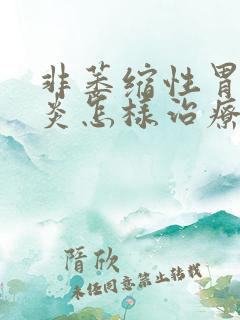 非萎缩性胃
炎怎样治疗
隋欣
未经同意禁止转载